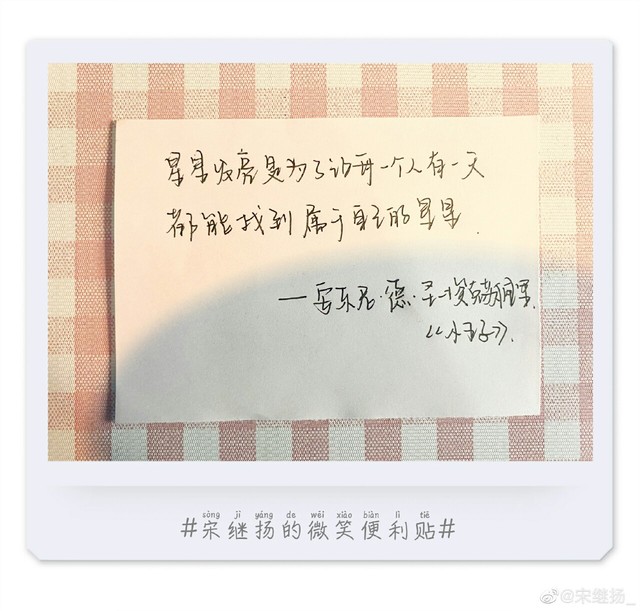 星星发亮是为了让每一个人有一天
都能找到属于自己的星星.
—安东尼·德·圣-埃克苏佩里.
《小王子》.
sòng jì yáng de wēi xiào biàn lì tiē
#宋继扬的微笑便利贴#
@宋继扬_